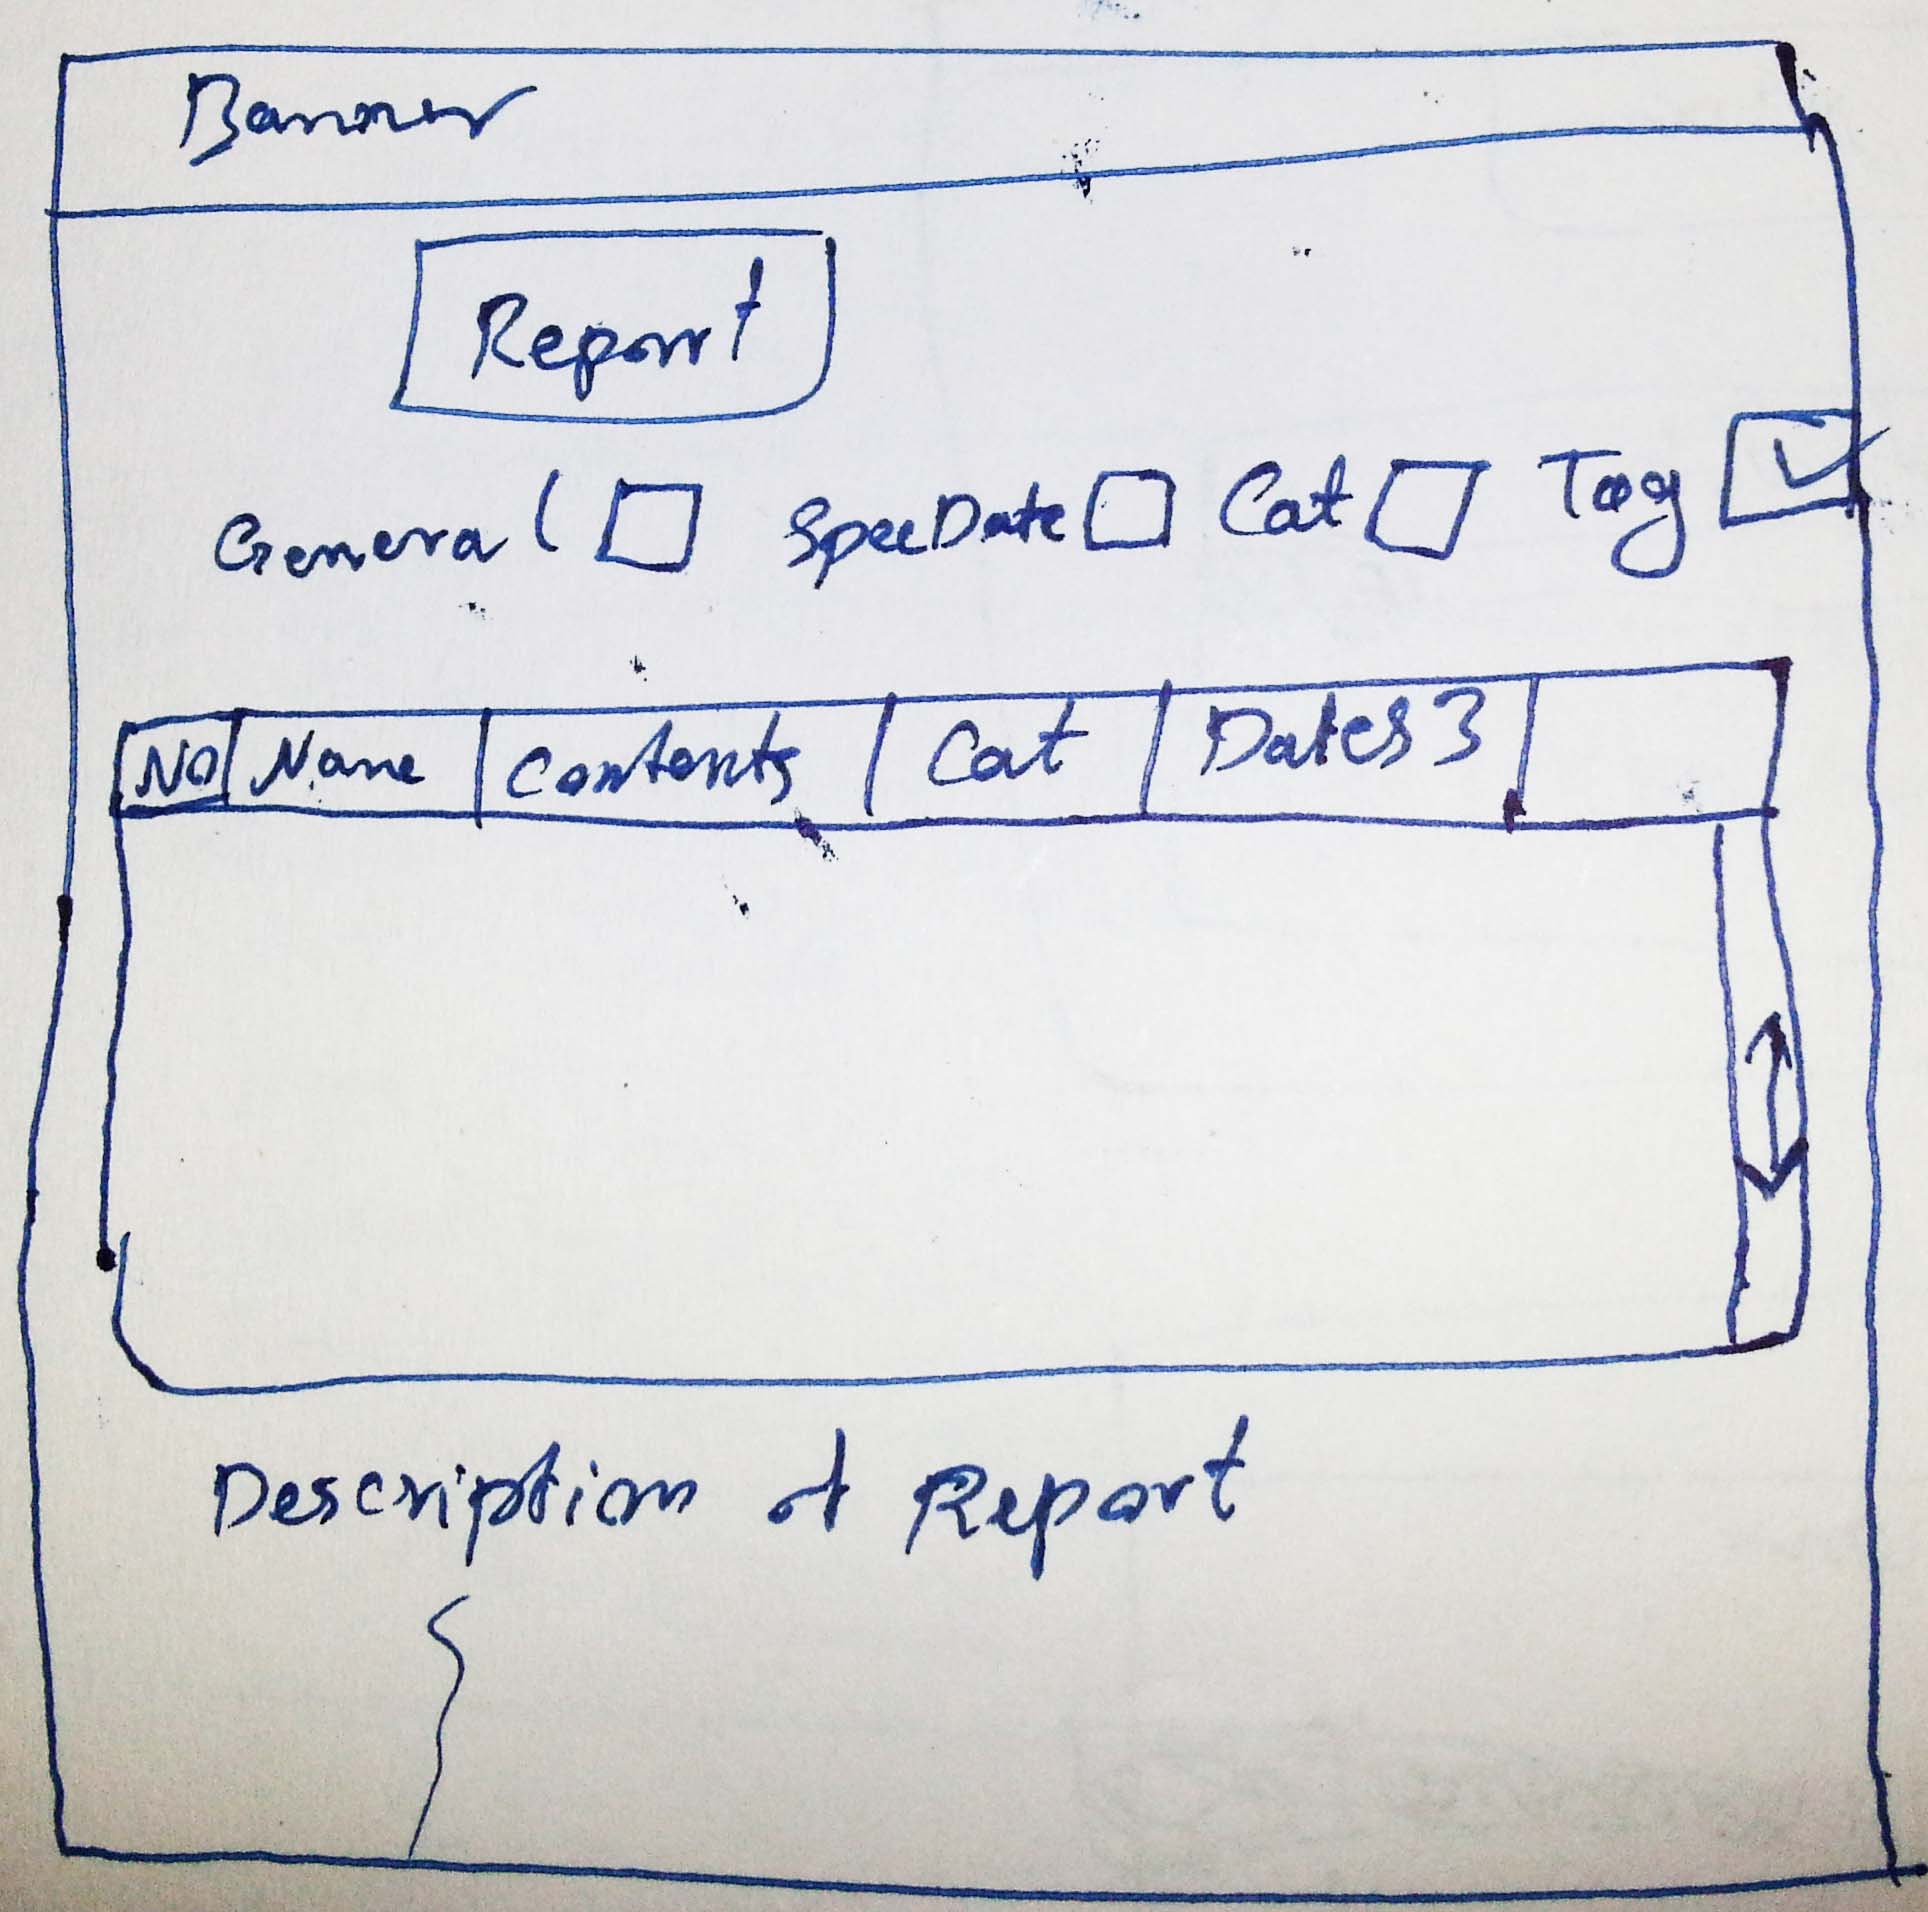 Banner
Report
General SpecDate Cat Tag
No Name Contents Cat Dates 3
Description of Report